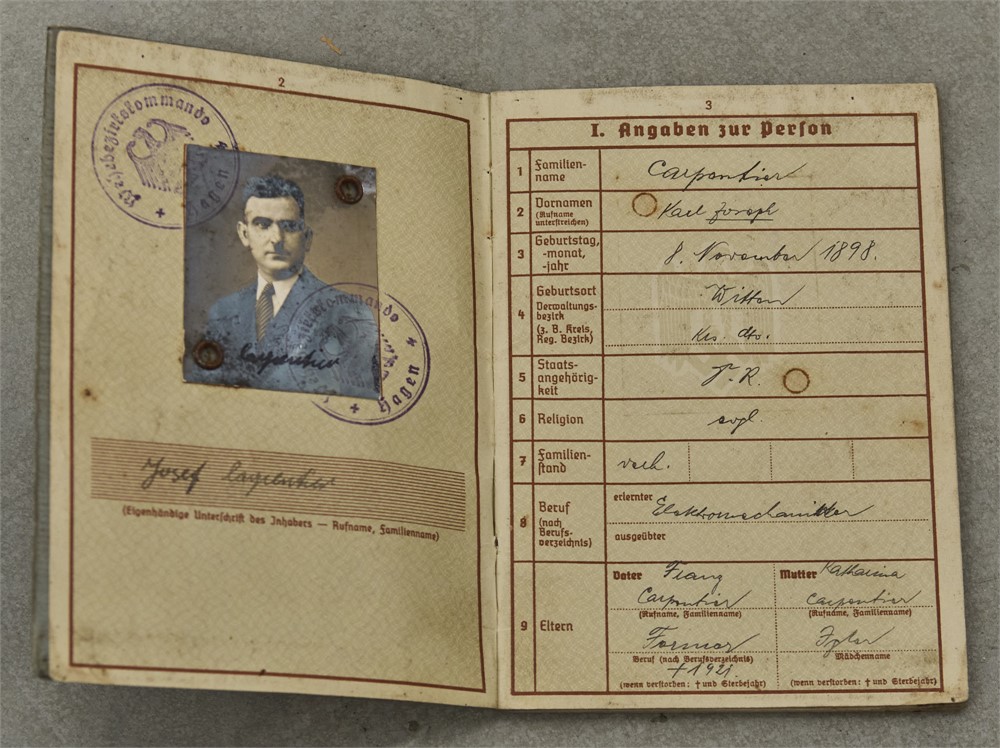 2
Wehrbezirkskommando Hagen
Wehrbezirkskommando Hagen
Carpentier
Josef Carpentier
(Eigenhändige Unterschrift des Inhabers — Rufname, Familienname)
3
I. Angaben zur Person
1 Familien-
name
Carpentier
2 Vornamen
(Rufname
unterstreichen)
Karl Joseph
3 Geburtstag,
-monat,
-jahr
8. November 1898.
4 Geburtsort
Verwaltungs-
bezirk
(z. B. Kreis,
Reg. Bezirk)
Witten
Krs. dto.
5 Staats-
angehörig-
keit
D. R.
6 Religion
evgl.
7 Familien-
stand
verh.
8 Beruf
(nach
Berufs-
verzeichnis)
erlernter Elektromechaniker
ausgeübter
9 Eltern
Vater Franz
Carpentier
(Rufname, Familienname)
Former
Beruf (nach Berufsverzeichnis)
† 1921.
(wenn verstorben: † und Sterbejahr)
Mutter Katharina
Carpentier
(Rufname, Familienname)
Mädchenname
(wenn verstorben: † und Sterbejahr)